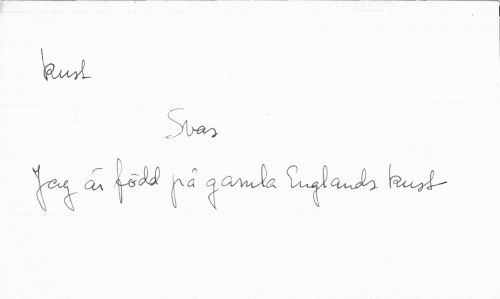 kust
Svas
Jag är född på gamla Englands kust